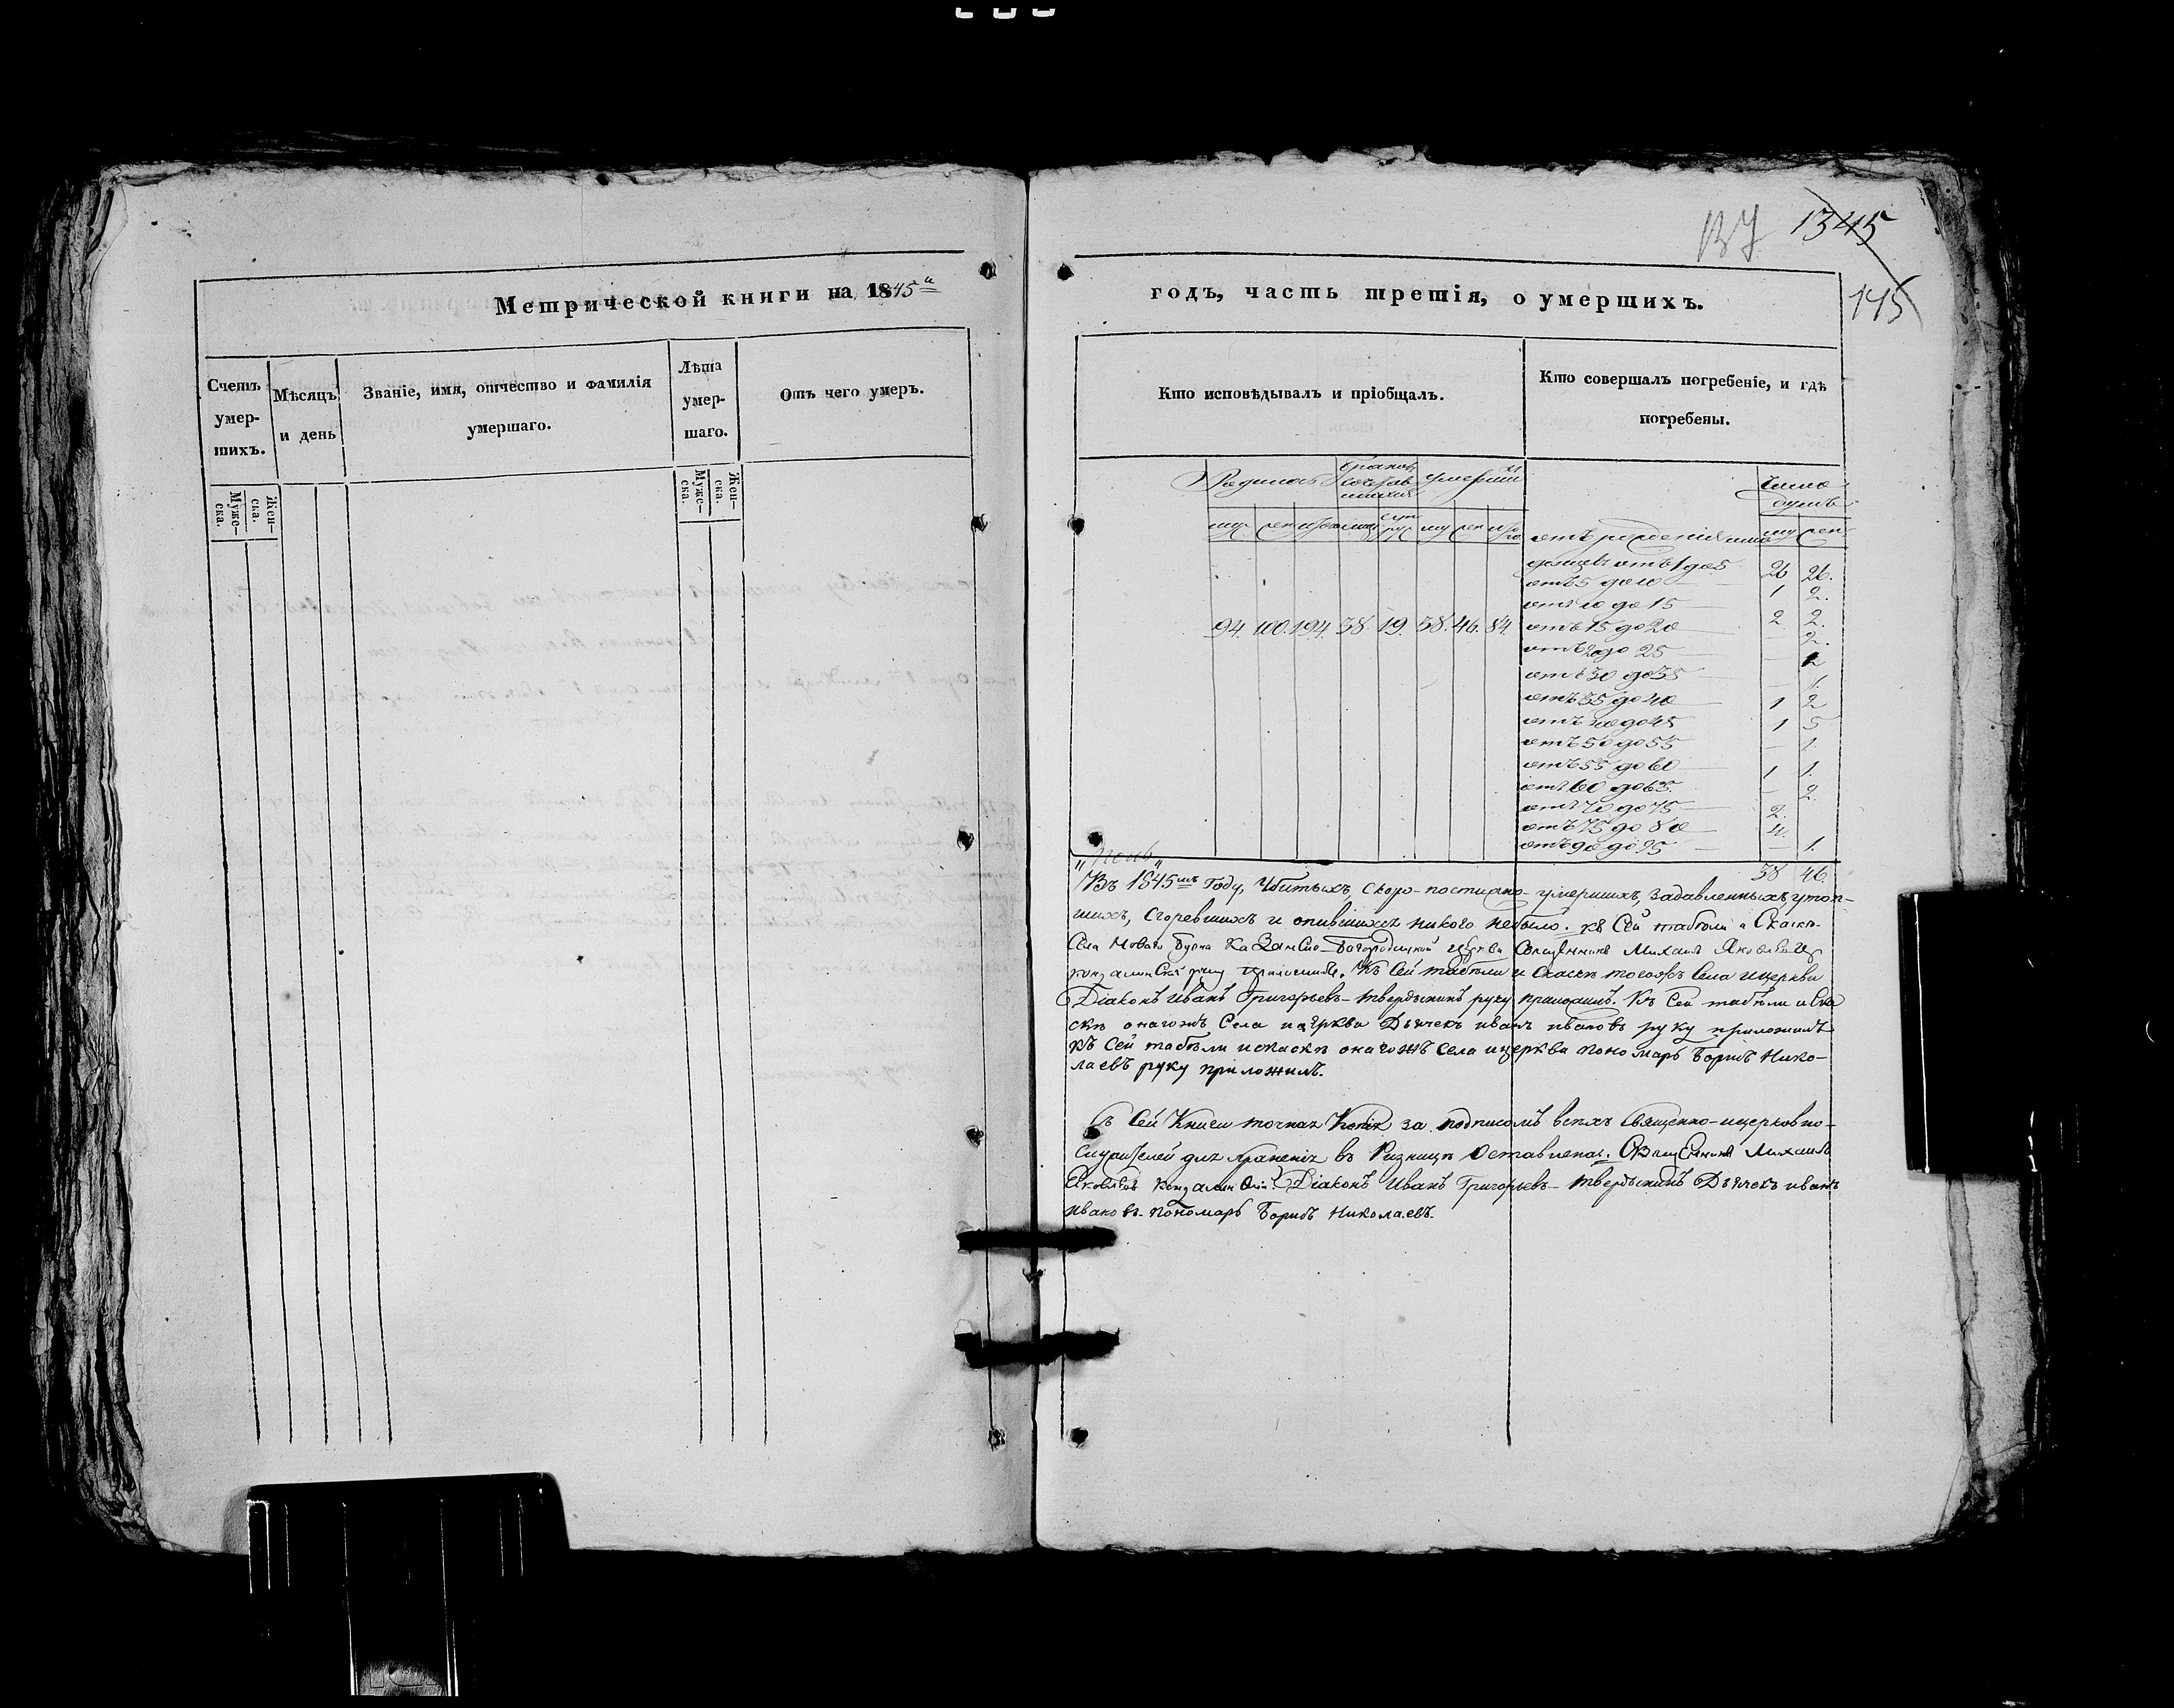 137 1345
145
Метрической книги на 1845й
годъ, часть третія, о умершихъ.
Счетъ умер-шихъ.
Мѣсяцъ и день
Званіе, имя, отчество и фамилія умершаго.
Лѣта умер-шаго.
Отъ чего умеръ.
Кто исповѣдывалъ и пріобщалъ.
Кто совершалъ погребеніе, и гдѣ погребены.
Муже-ска.
Жен-ска.
Муже-ска.
Жен-ска.
Родилось
браковъ
умерши
Число душъ
му жен
отъ рожденія
отъ 1 до 5 26 26.
отъ 5 до 10 1 2.
отъ 10 до 15 2 2.
94. 100. 194. 38. 19. 38. 46. 84.
отъ 15 до 20 — 2.
отъ 20 до 25 —
отъ 30 до 35 — 1.
отъ 35 до 40 1 2
отъ 40 до 45 1 5
отъ 50 до 55 — 1.
отъ 55 до 60 1 1.
отъ 60 до 65. — 2.
отъ 70 до 75 2.
отъ 75 до 80 4.
отъ 90 до 95 — 1.
38 46.
Въ 1845мъ Году, Убитыхъ, скоро-постижно-умершихъ, задавленныхъ, утоп-
шихъ, сгоревшихъ и опившихся никого небыло. къ Сей табели и Скаске
Села Казанско-Богородицкой церкви Священникъ Михаилъ Яковлевъ
руку приложилъ. Къ Сей табели и Скаске тогожъ Села и церкви
Діаконъ Иванъ Григорьевъ-Твердынинъ руку приложилъ. Къ Сей табели и Ска
скѣ онагожъ Села и церкви Дьячекъ иванъ ивановъ руку приложилъ
къ Сей табели и скаскѣ онагожъ Села и церкви пономарь Борисъ Нико-
лаевъ руку приложилъ.
Съ Сей Книги точная Копія за подписомъ всехъ Священно-и церковно-
служителей для храненія въ Ризнице Оставлена. Священникъ Михаилъ
Яковлевъ Діаконъ Иванъ Григорьевъ-Твердынинъ Дьячекъ иванъ
ивановъ. пономарь Борисъ Николаевъ.